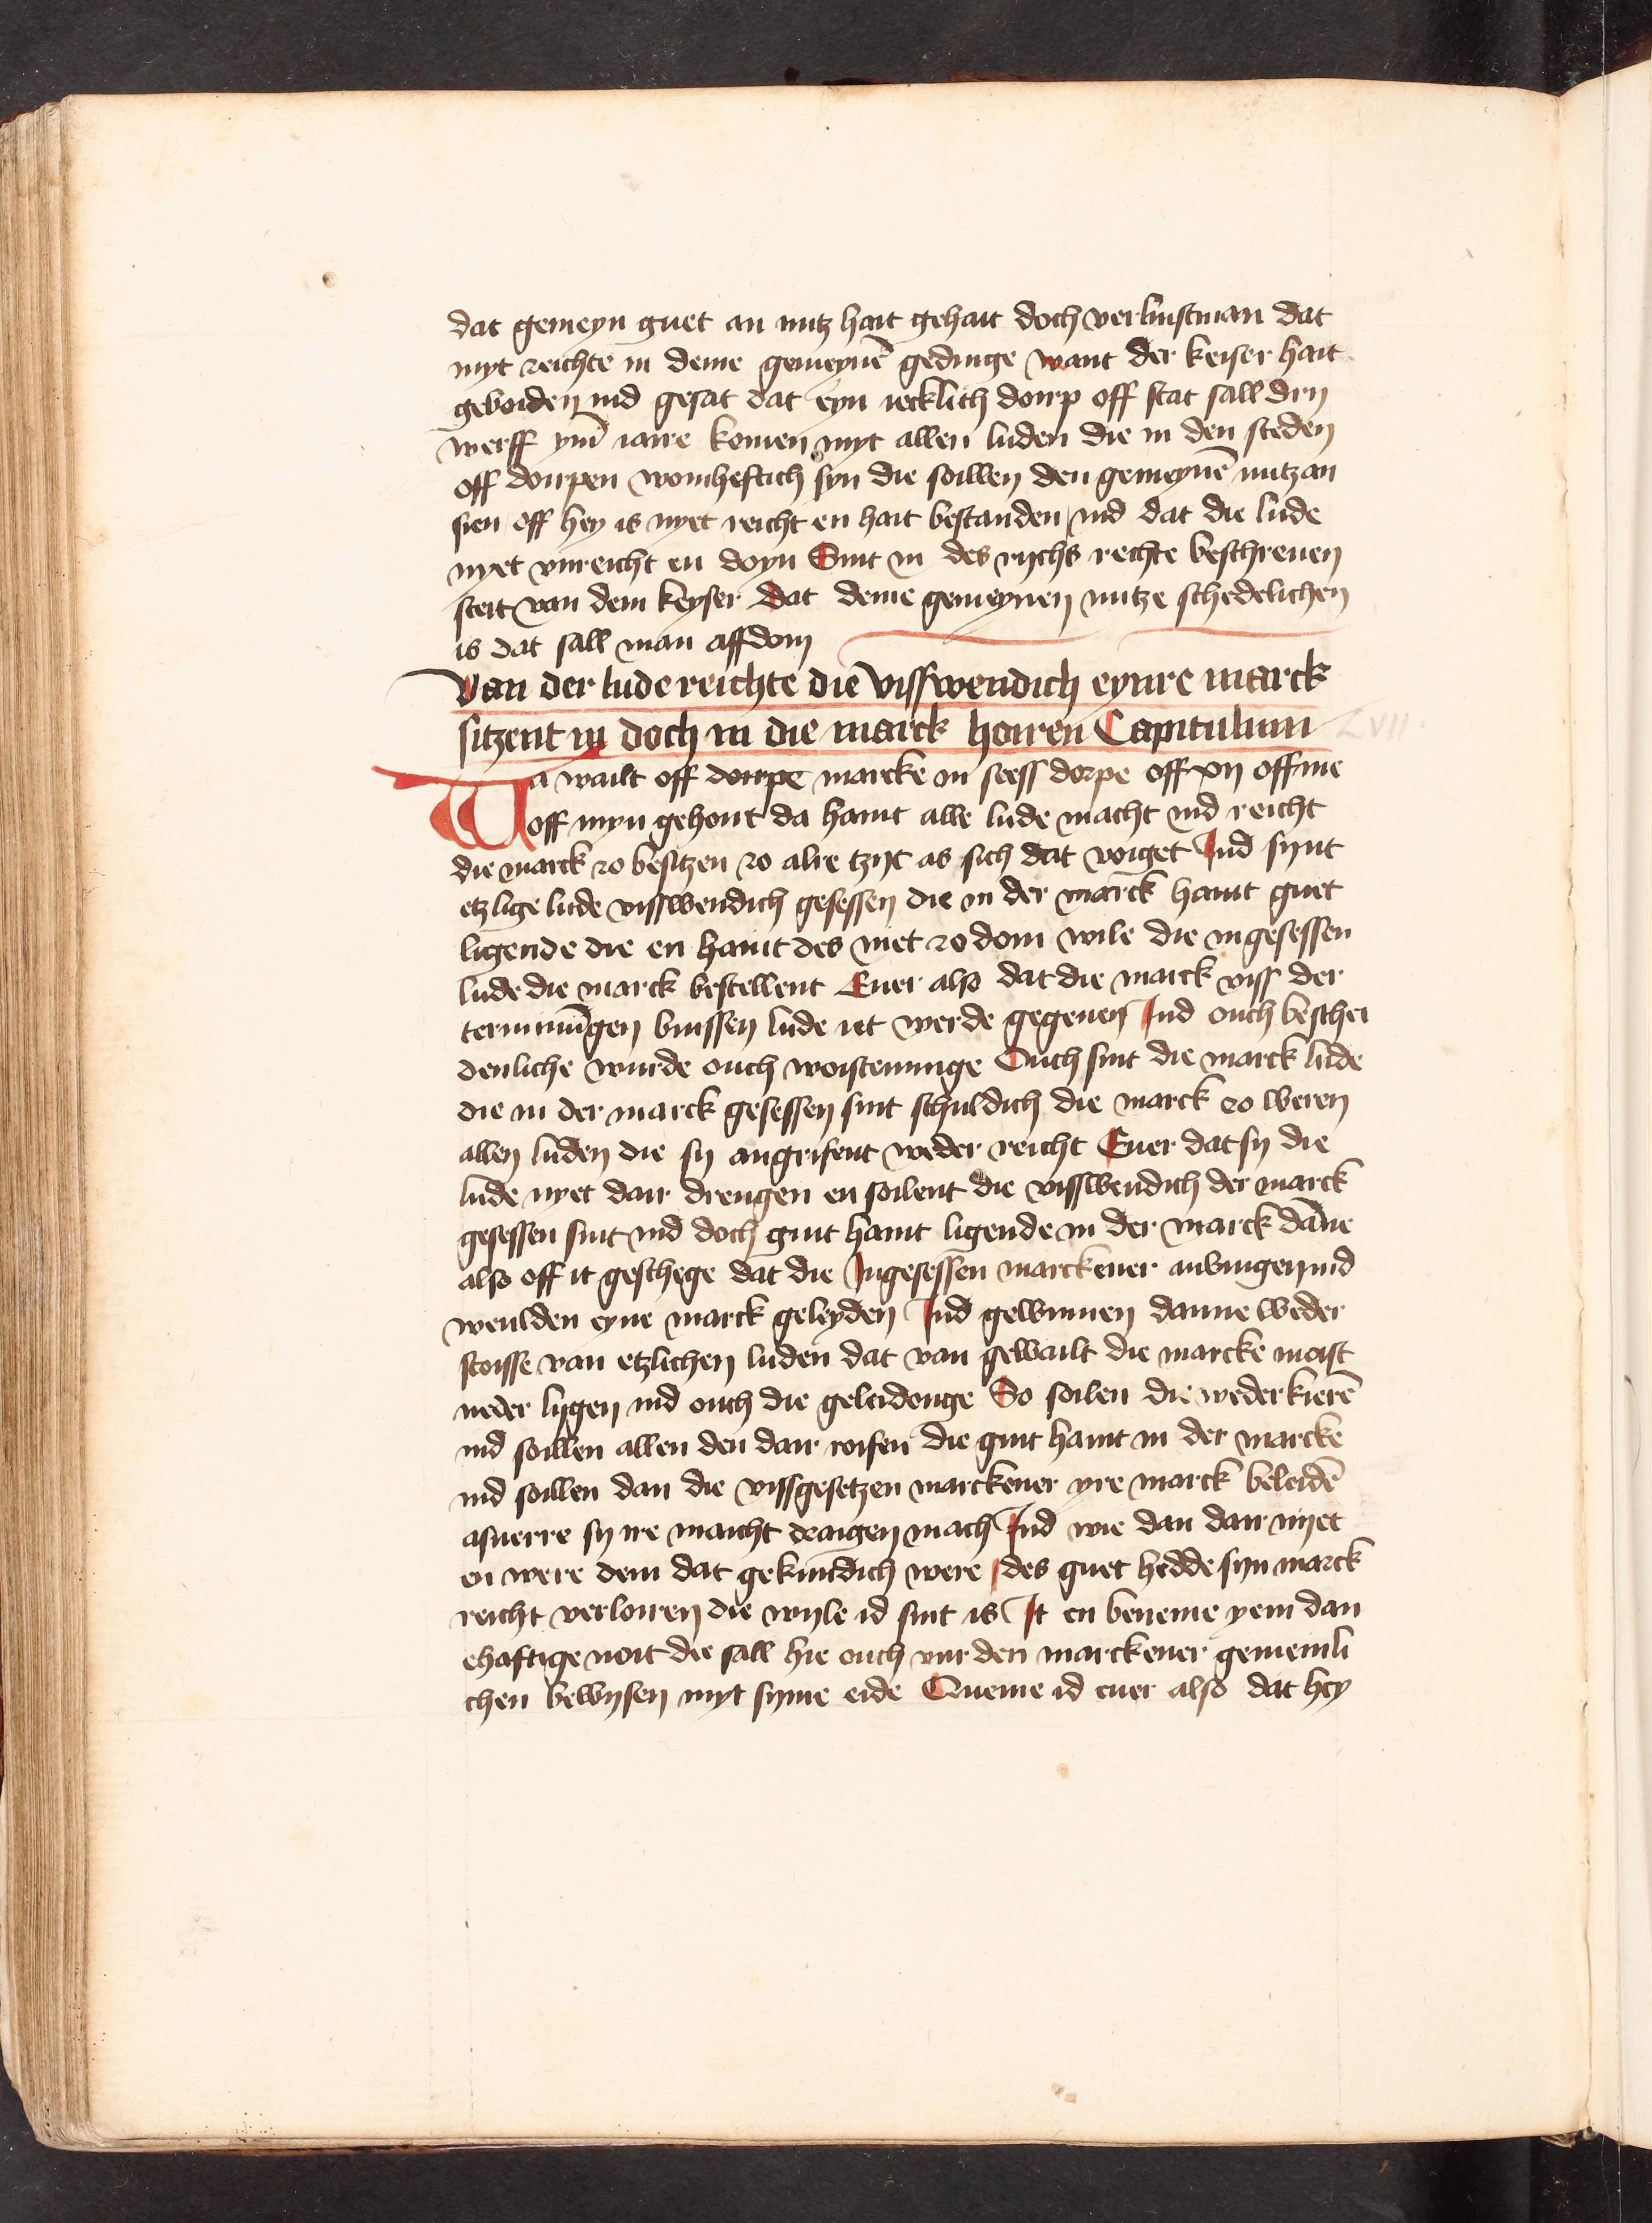 dat gemeyn guet an nutz hait gehait doch verluistman dat
myt reichte in deme gemeynē gedinge want der keiser hait
geboiden ind gesat dat eyn iecklich dorrp off stat sall dry
werff ym̄ iaire komen myt allen luden die in den steden
off dorrpen wonheftich syn die soillen den gemeynē nutz an
sien off hey is nyet reicht en hait bestanden ind dat die lude
nyet vnreicht en doyn Sint in des rychs rechte beschreuen
steit van dem keyser Dat deme gemeynen nutze schedelichen
is dat sall man affdoin
Van der lude reichte die visswendich eynre marck
sitzent in doch in die marck hoiren Capitulum LVII
Wa wailt off dorrpe marcke in seess dorpe off xij off me
off myn gehort da haint alle lude macht ind reicht
die marck zo besitzen zo alre tzijt as sich dat voiget Ind synt
etzlige lude vissswendich gesessen die in der marck haint guet
ligende die en haint des niet zo doin wile die ingesessen
lude die marck bestellent Euer also dat die marck viss der
terminūgen buissen lude iet werde gegeuen Ind ouch beschei
denliche wurde ouch woistenunge Ouch sint die marck lude
die in der marck gesessen sint schuldich die marck zo weren
allen luden die sy angrifent weder reicht Euer dat sy die
lude nyet dair drengen en soilent die vissswendich der marck
gesessen sint ind doch guit haint ligende in der marck dāne
also off it geschege dat die Ingesessen marckener anvingen ind
weulden eyne marck geleyden Ind gewunnen danne weder
stoisse van etzlichen luden dat van gewailt die marcke moist
neder lygen ind ouch die geleidonge So soilen die wederkierē
ind soillen allen den dair roifen die guit haint in der marcke
ind soillen dan die vissgesetzen marckener yre marck beleidē
asuerre sy ire maicht draigen mach Ind wie dan dair nyet
en were dem dat gekundich were des guet hedde syn marck
reicht verloiren die wyle id sint is It en beneme yem dan
ehaftige noit die sall hie ouch vur den marckener gemeinli
chen bewysen myt syme eide Queme id euer also dat hey